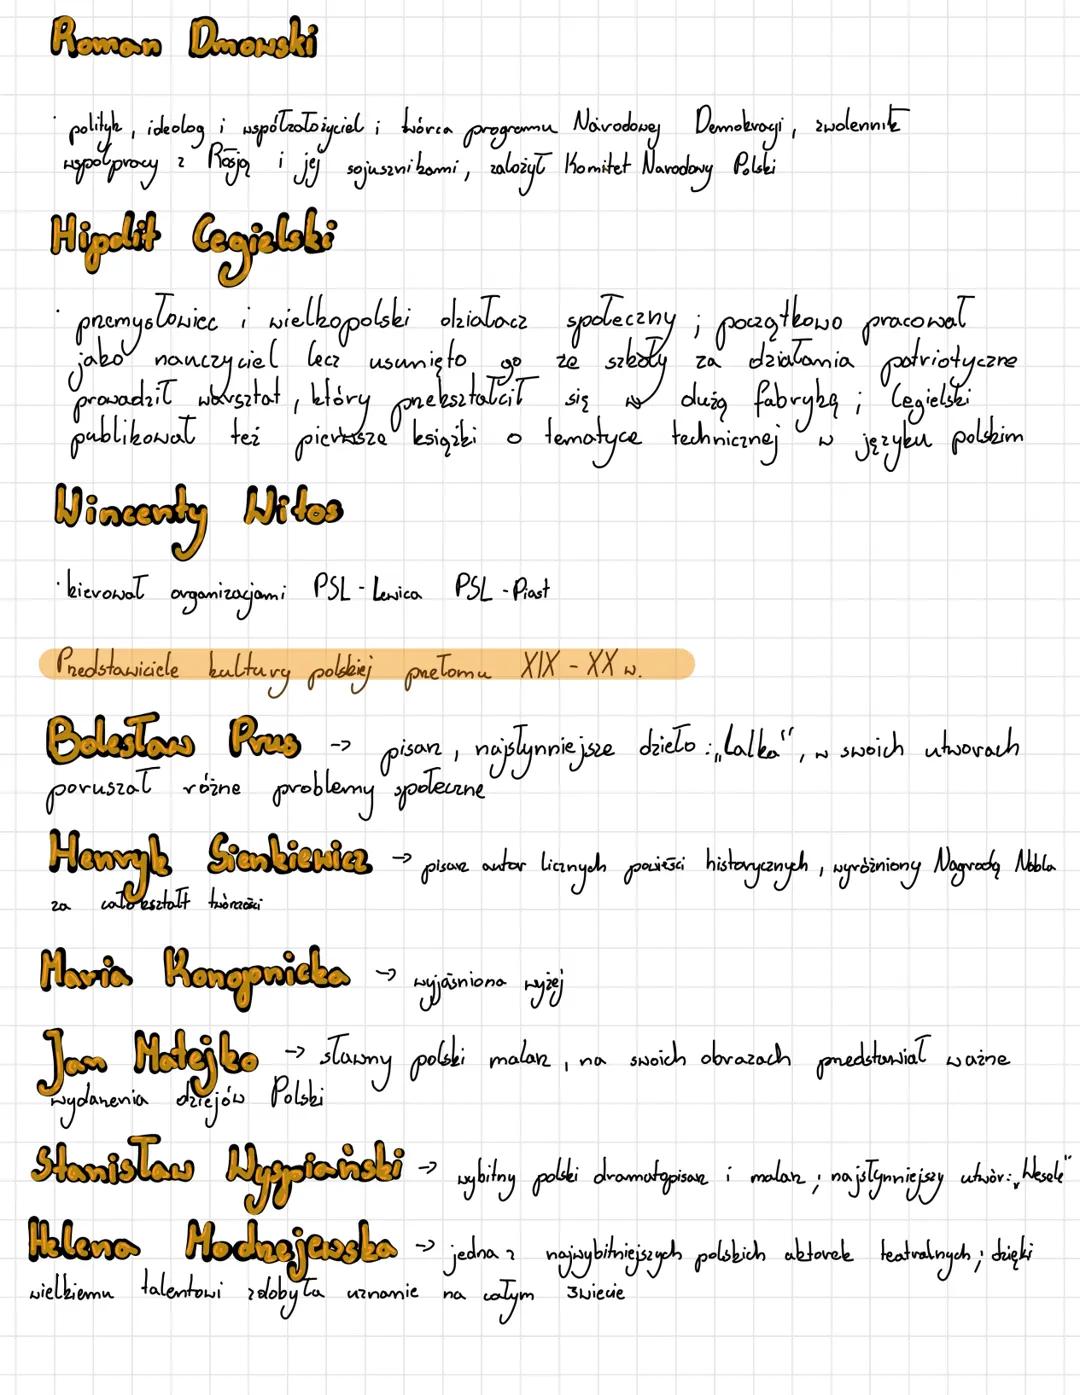 Roman Dmowski
· polityk, ideolog i współzałożyciel i twórca programu Narodowej Demokracji, zwolennik
współpracy z Rosją i jej sojusznikami, założył Komitet Narodowy Polski
Hipolit Cegielski
· przemysłowiec i wielkopolski działacz społeczny; początkowo pracował
jako nauczyciel lecz usunięto go ze szkoły za działania patriotyczne
prowadził warsztat, który przekształcił się w dużą fabrykę; Cegielski
publikował też pierwsze książki o tematyce technicznej w języku polskim
Wincenty Witos
· kierował organizacjami PSL - Lewica PSL - Piast
Przedstawiciele kultury polskiej przełomu XIX - XX w.
Bolesław Prus -> pisarz, najsłynniejsze dzieło: „Lalka", w swoich utworach
poruszał różne problemy społeczne
Henryk Sienkiewicz -> pisarz autor licznych powieści historycznych, wyróżniony Nagrodą Nobla
za całokształt twórczości
Maria Konopnicka -> wyjaśniona wyżej
Jan Matejko -> sławny polski malarz, na swoich obrazach przedstawiał ważne
wydarzenia dziejów Polski
Stanisław Wyspiański -> wybitny polski dramatopisarz i malarz; najsłynniejszy utwór: „Wesele"
Helena Modrzejewska -> jedna z najwybitniejszych polskich aktorek teatralnych; dzięki
wielkiemu talentowi zdobyła uznanie na całym świecie